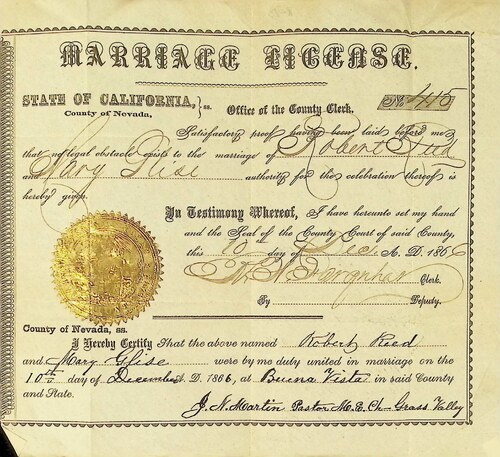 MARRIAGE LICENSE.
STATE OF CALIFORNIA, } ss. Office of the County Clerk. No. 415
County of Nevada,
Satisfactory proof having been laid before me
that no legal obstacle exists to the marriage of Robert Reed
and Mary Glise authority for the celebration thereof is
hereby given.
In Testimony Whereof, I have hereunto set my hand
and the Seal of the County Court of said County,
this 10 day of Dec. A. D. 1866
Farquhar Clerk.
By Deputy.
County of Nevada, ss.
I Hereby Certify That the above named Robert Reed
and Mary Glise were by me duly united in marriage on the
10th day of December A. D. 1866, at Buena Vista in said County
and State.
J. N. Martin Pastor M. E. Ch - Grass Valley